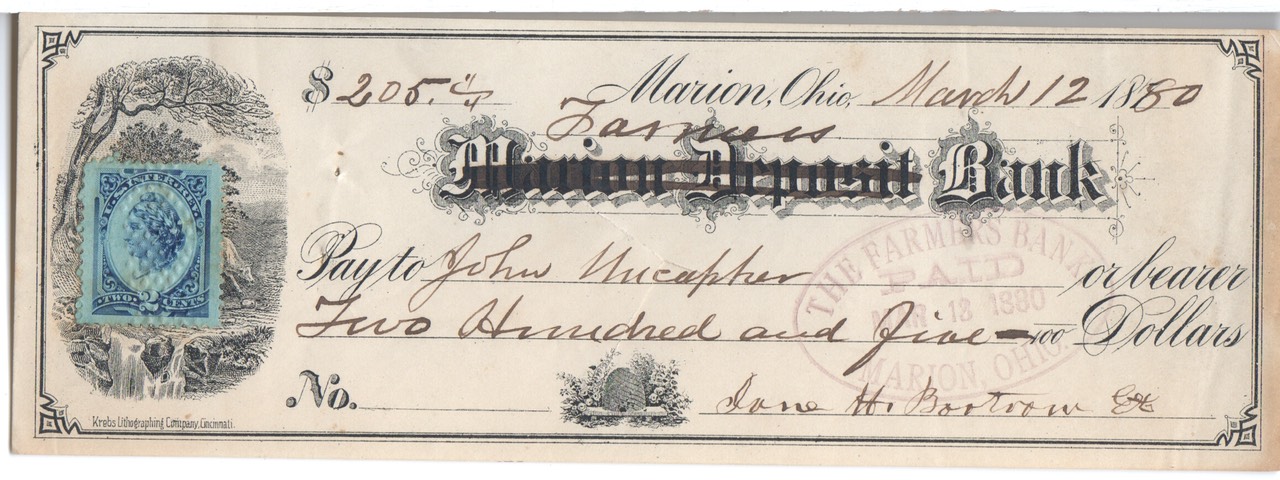 $ 205.
Marion, Ohio, March 12 1880
Farmers
Marion Deposit Bank
U.S. INTER. REV.
TWO 2 CENTS
Pay to John Uncapher or bearer
Two Hundred and five — /100 Dollars
THE FARMERS BANK
PAID
MAR 13 1880
MARION, OHIO
No. Jane H. Bartram
Krebs Lithographing Company, Cincinnati.